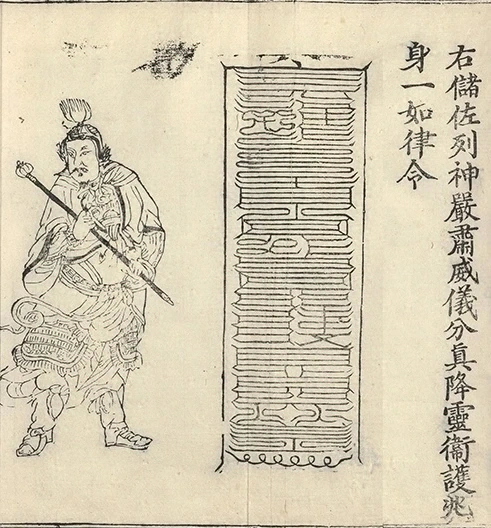 右儲佐列神嚴肅威儀分真降靈衞護兆
身一如律令